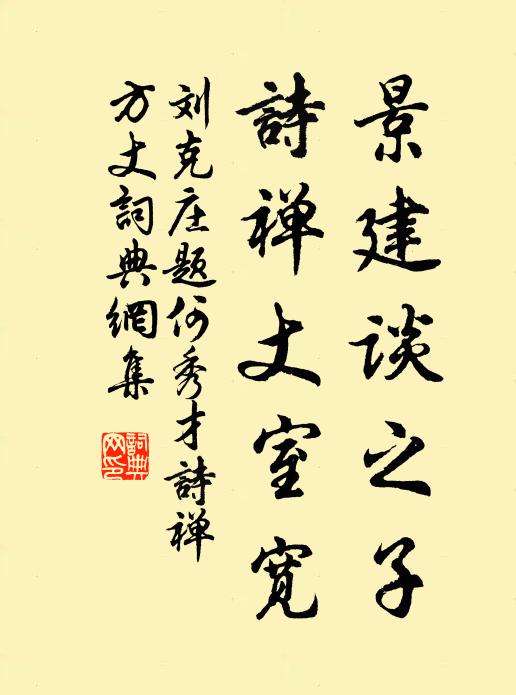 景建谈之子
詩禅丈室宽
刘克庄题何秀才詩禅
方丈詞典網集
詞典
网印